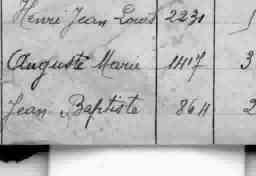 Henri Jean Louis 2231
Auguste Marie 1417 3
Jean Baptiste 8611 2